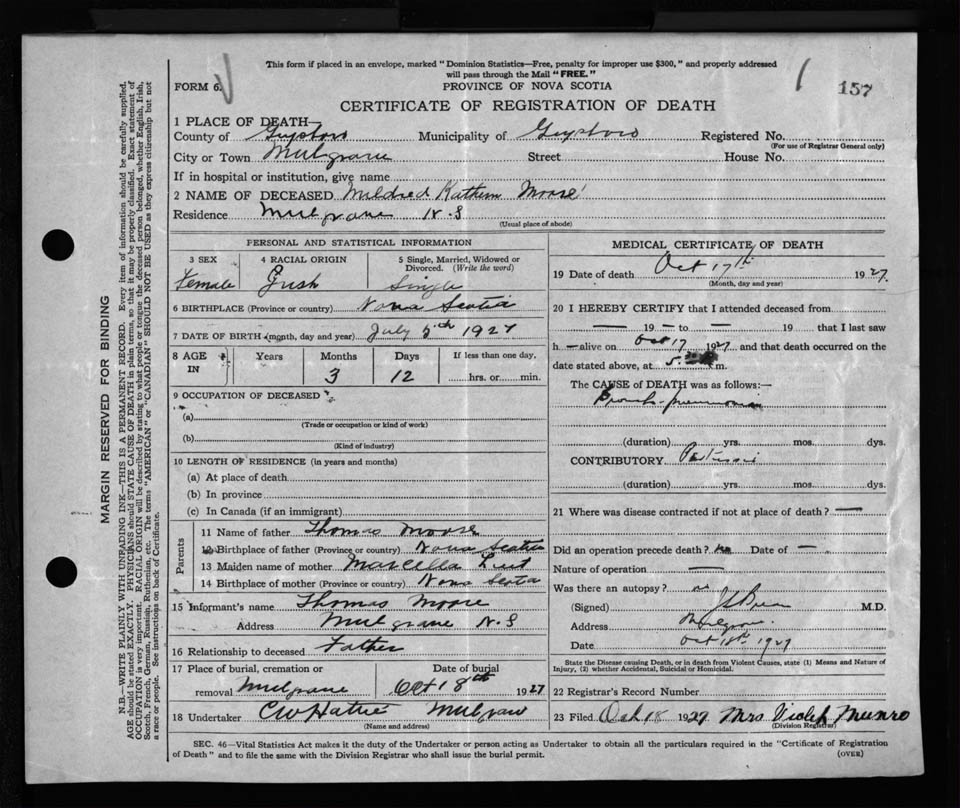 This form if placed in an envelope, marked "Dominion Statistics—Free, penalty for improper use $300," and properly addressed
will pass through the Mail "FREE."
FORM 6.
PROVINCE OF NOVA SCOTIA
157
CERTIFICATE OF REGISTRATION OF DEATH
1 PLACE OF DEATH—
County of Municipality of Registered No.
(For use of Registrar General only)
City or Town Mulgrave Street House No.
If in hospital or institution, give name
2 NAME OF DECEASED Mildred Moore
Residence Mulgrave N.S
(Usual place of abode)
PERSONAL AND STATISTICAL INFORMATION
3 SEX 4 RACIAL ORIGIN 5 Single, Married, Widowed or Divorced. (Write the word)
Female Single
6 BIRTHPLACE (Province or country) Nova Scotia
7 DATE OF BIRTH (month, day and year) July 5th 1927
8 AGE IN Years Months Days If less than one day,
3 12 hrs. or min.
9 OCCUPATION OF DECEASED
(a)
(Trade or occupation or kind of work)
(b)
(Kind of industry)
10 LENGTH OF RESIDENCE (in years and months)
(a) At place of death
(b) In province
(c) In Canada (if an immigrant)
Parents
11 Name of father Thomas Moore
12 Birthplace of father (Province or country) Nova Scotia
13 Maiden name of mother Marcella
14 Birthplace of mother (Province or country) Nova Scotia
15 Informant's name Thomas Moore
Address Mulgrave N.S
16 Relationship to deceased Father
17 Place of burial, cremation or Date of burial
removal Mulgrave Oct 18th 1927
18 Undertaker Mulgrave
(Name and address)
MEDICAL CERTIFICATE OF DEATH
19 Date of death Oct 17th 1927.
(Month, day and year)
20 I HEREBY CERTIFY that I attended deceased from
— 19 — to — 19 that I last saw
h. — alive on Oct 17 1927 and that death occurred on the
date stated above, at 5. m.
The CAUSE of DEATH was as follows:—
Broncho-pneumonia
(duration) yrs. mos. dys.
CONTRIBUTORY Pertussis
(duration) yrs. mos. dys.
21 Where was disease contracted if not at place of death? —
Did an operation precede death? no Date of —
Nature of operation —
Was there an autopsy? no
(Signed) M.D.
Address Mulgrave
Date Oct 18th 1927
State the Disease causing Death, or in death from Violent Causes, state (1) Means and Nature of
Injury, (2) whether Accidental, Suicidal or Homicidal.
22 Registrar's Record Number
23 Filed Oct 18 1927 Mrs Violet Munro
(Division Registrar)
SEC. 46—Vital Statistics Act makes it the duty of the Undertaker or person acting as Undertaker to obtain all the particulars required in the "Certificate of Registration
of Death" and to file the same with the Division Registrar who shall issue the burial permit.
(OVER)
MARGIN RESERVED FOR BINDING
N.B.—WRITE PLAINLY WITH UNFADING INK—THIS IS A PERMANENT RECORD. Every item of information should be carefully supplied.
AGE should be stated EXACTLY. PHYSICIANS should STATE CAUSE OF DEATH in plain terms, so that it may be properly classified. Exact statement of
OCCUPATION is very important. RACIAL ORIGIN will be described by stating to what people or tongue the deceased person belonged, whether English, Irish,
Scotch, French, German, Russian, Ruthenian, etc. The terms "AMERICAN" or "CANADIAN" SHOULD NOT BE USED as they express citizenship but not
a race or people. See instructions on back of Certificate.